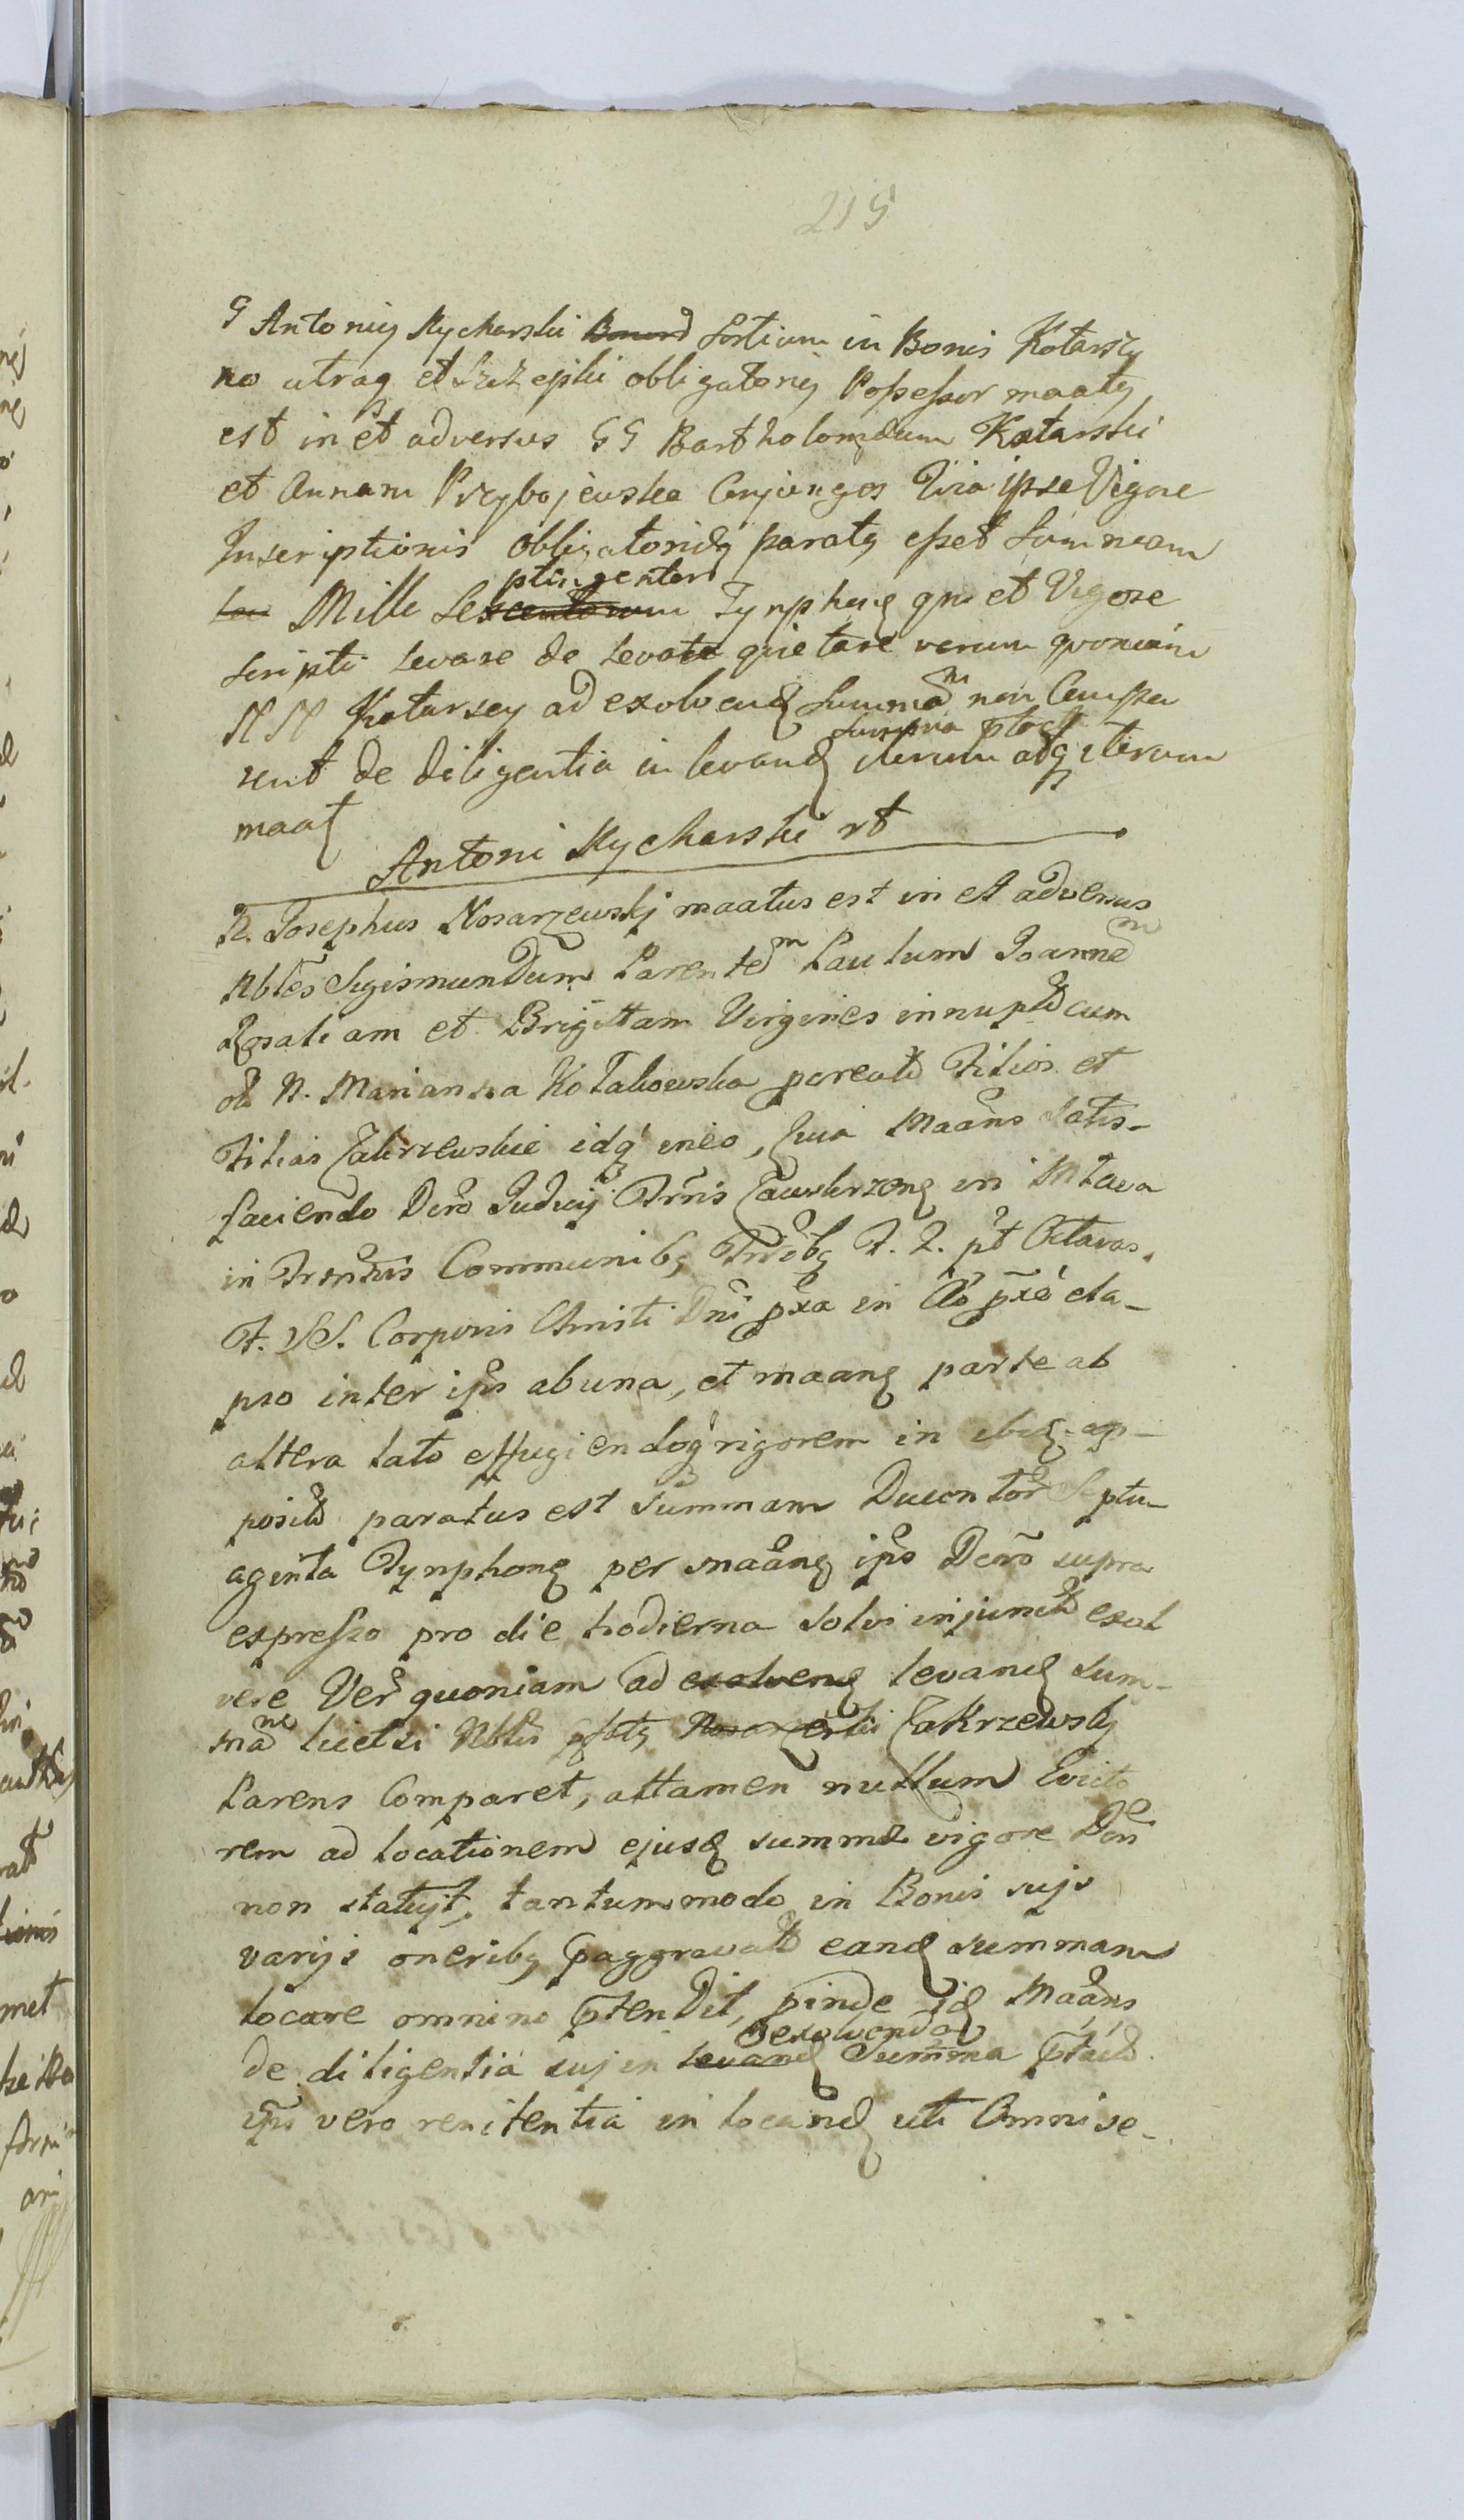 215
G Antonius Rycharski Bonord Sortium in Bonis Kotarszy
no utraq et Szczepki obligatorig Possessor maatg
est in et adversus GG Bartholomæum Kotarski
et Annam Przybojewska Conjunges Quia ipse Vigore
Inscriptionis obligatoriæ paratg esset Summam
Mille Sexcentorum ptingentord Tynphong qm et Vigore
Scripti levare de levata quietare verum quoniam
NN Kotarscy ad exolvend Summam non Compa
runt de diligentia in levand Summa iterum atq iterum
maat
Antoni Rycharski rt
N. Josephus Nosarzewskj maatus est in et adversus
Nbles Sigismundum Parentem Paulum Joannem
Rosaliam et Brigittam Virgines innuptas cum
N. Marianna Kotakowska Filios et
Filias Zakrzewskie idq ineo, quia Maans satis-
faciendo Dcro Judicij Trnis Zawskrzen in Mlava
in Communibg F. 2. pt Octavas
F. SS. Corporis Christi Dni pxa in Ao pxe ela-
pso inter ips ab una, et maang parte ab
altera lato effugiendoq rigorem in ap-
posit paratus est Summam Ducentor Septu-
aginta Tynphong per maang ips Dcro supra
expresso pro die hodierna solvi injunct exol
vere Ver quoniam ad exolvend levand sum-
mam licet si Nblis Zakrzewskj
Parens Comparet, attamen nullum Evicto
rem ad locationem ejusd summæ vigore Dcri
non statujt, tantummodo in Bonis sujs
varijs oneribg paggravat eand summam
locare omnino ptendit, pinde id Maans
de diligentia suj in levand exolvenda Summa
ips vero renitentia in locand uti Omni se-